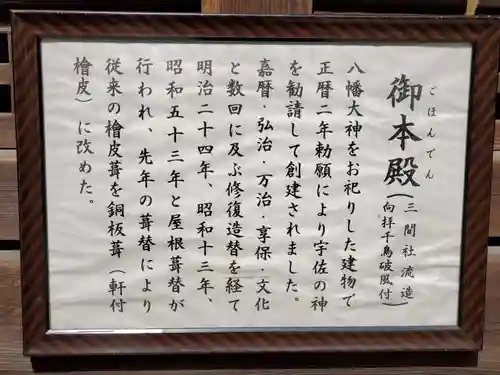 御本殿
ごほんでん
(三間社流造
向拝千鳥破風付)
八幡大神をお祀りした建物で
正暦二年勅願により宇佐の神
を勧請して創建されました。
嘉暦・弘治・万治・享保・文化
と数回に及ぶ修復造替を経て
明治二十四年、昭和十三年、
昭和五十三年と屋根葺替が
行われ、先年の葺替により
従来の檜皮葺を銅板葺(軒付
檜皮)に改めた。